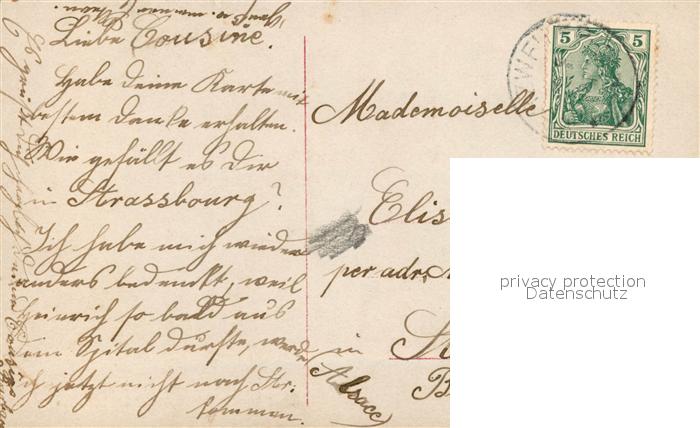 Liebe Cousine.
Habe deine Karte mit
bestem Danke erhalten.
Wie gefällt es dir
in Strassbourg?
Ich habe mich wieder
anders bedenkt, weil
Heinrich so bald aus
dem Spital durfte, werde
ich jetzt nicht nach Str.
kommen.
Mademoiselle
Elis
per adr.
in St
Alsace
B
5 5
DEUTSCHES REICH
WE
privacy protection
Datenschutz